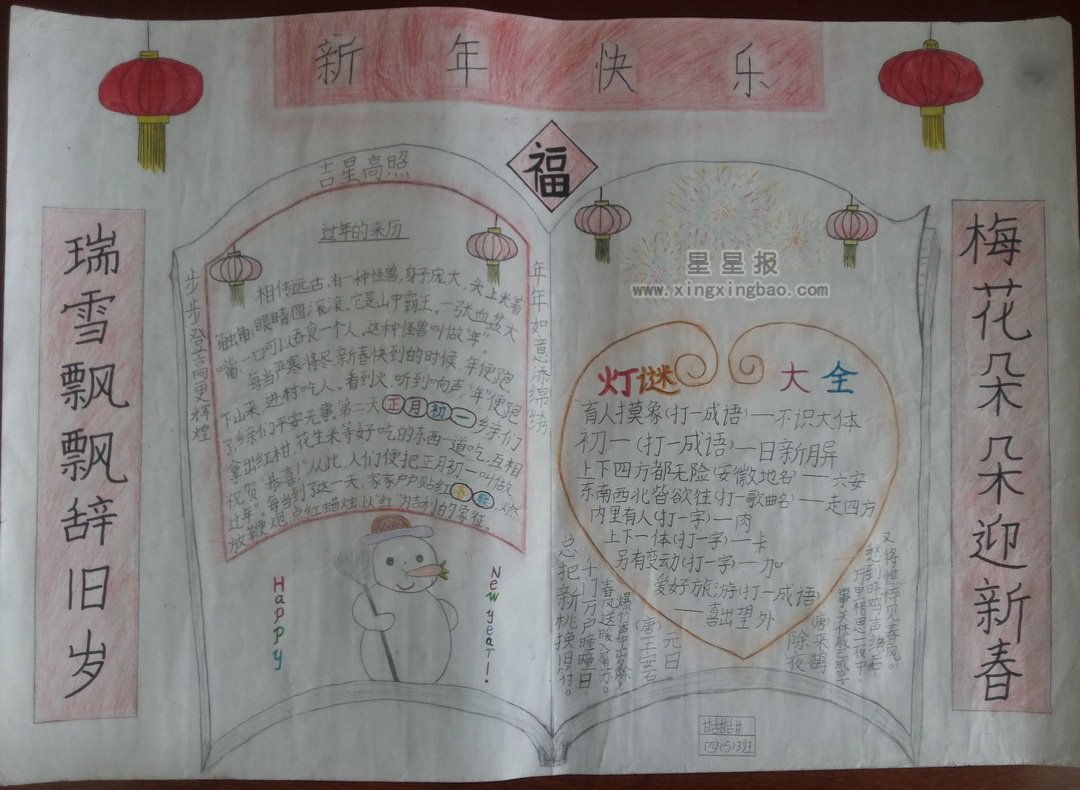 新年快乐
福
瑞雪飘飘辞旧岁
梅花朵朵迎新春
吉星高照
步步登高更辉煌
年年如意添锦绣
过年的来历
相传远古,有一种怪兽,身子庞大,头上长着
触角,眼睛圆滚滚,它是山中霸王。一张血盆大
嘴,一口可以吞食一个人。这种怪兽叫做“年”。
每当严寒将尽,新春快到的时候,年便跑
下山来,进村吃人。看到火、听到响声,“年”便跑
了,乡亲们平安无事。第二天正月初一,乡亲们
拿出红柑、花生米等好吃的东西一道吃,互相
祝贺“恭喜!”从此,人们便把正月初一叫做
过年”。每当到了这一天,家家户户贴红
放鞭炮,点红蜡烛,以“红”为吉利的象征。
Happy
New year!
星星报
www.xingxingbao.com
灯谜大全
盲人摸象(打一成语)—不识大体
初一(打一成语)—日新月异
上下四方都无险(安徽地名)—六安
东南西北皆欲往(打一歌曲名)—走四方
内里有人(打一字)—肉
上下一体(打一字)—卡
另有变动(打一字)—加
爱好旅游(打一成语)
—喜出望外
元日
(唐)王安石
爆竹声中一岁除,
春风送暖入屠苏。
千门万户曈曈日,
总把新桃换旧符。
除夜
(唐)来鹄
事关休戚已成空
万里相思一夜中
愁到晓鸡声绝后
又将憔悴见春风。
甜甜甜
四(5)班